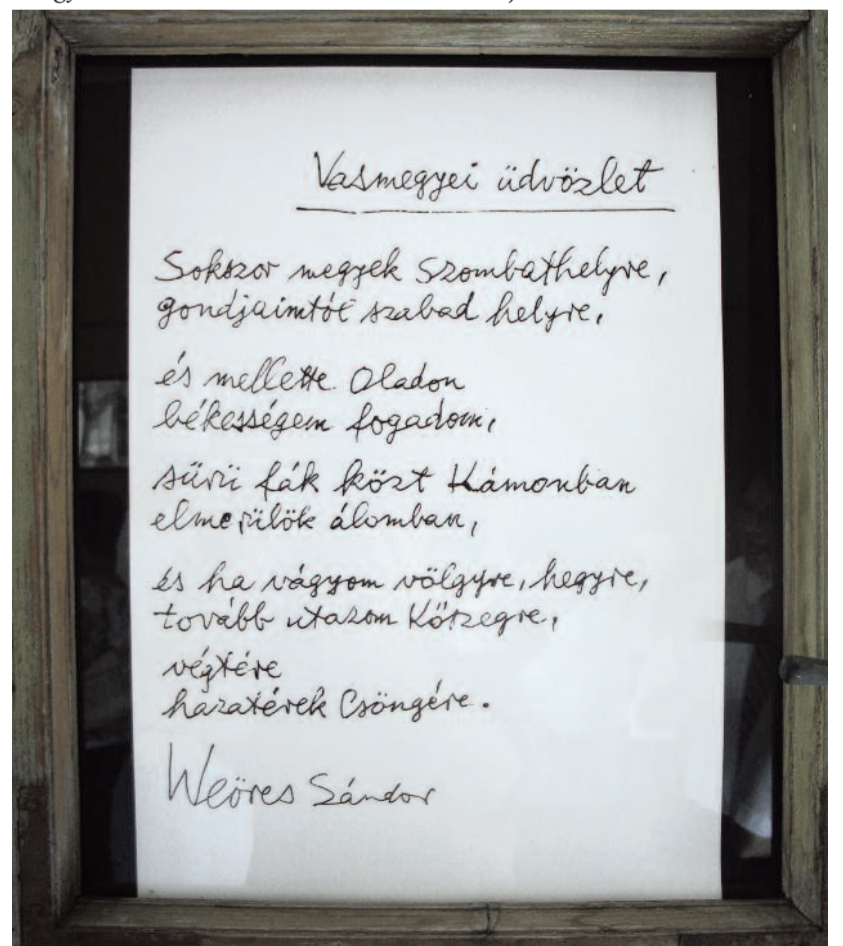 Vasmegyei üdvözlet
Sokszor megyek Szombathelyre,
gondjaimtól szabad helyre,
és mellette Oladon
békességem fogadom,
sűrü fák közt Kámonban
elmerülök álomban,
és ha vágyom völgyre, hegyre,
tovább utazom Kőszegre,
végtére
hazatérek Csöngére.
Weöres Sándor